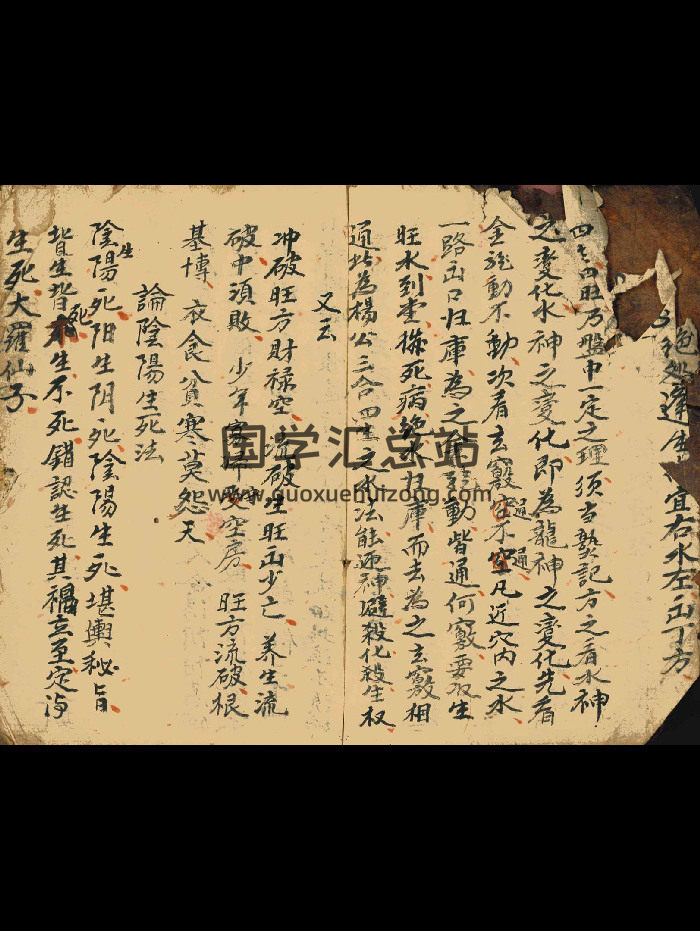 绝处逢生 宜右水左出丁方
四生四旺乃盤中一定之理須当熟記方之看水神
之变化水神之变化即為龍神之变化先看
金龍動不動次看玄竅通不通凡近穴内之水
一路出口归庫為之金龍動皆通何竅要取生
旺水到堂 死病絶水归庫而去為之玄竅相
通此為楊公三合四生之水法能迎神避殺化殺生权
又云
冲破旺方財禄空 流破生旺出少亡 养生流
破中須敗 少年寡婦受空房 旺方流破根
基博 衣食貧寒莫怨天
論陰陽生死法
陰陽生死阳生阴死陰陽生死堪輿秘旨
皆生皆死不生不死錯認生死其禍立至定
生死大羅仙子
国学汇总站
www.guoxuehuizong.com